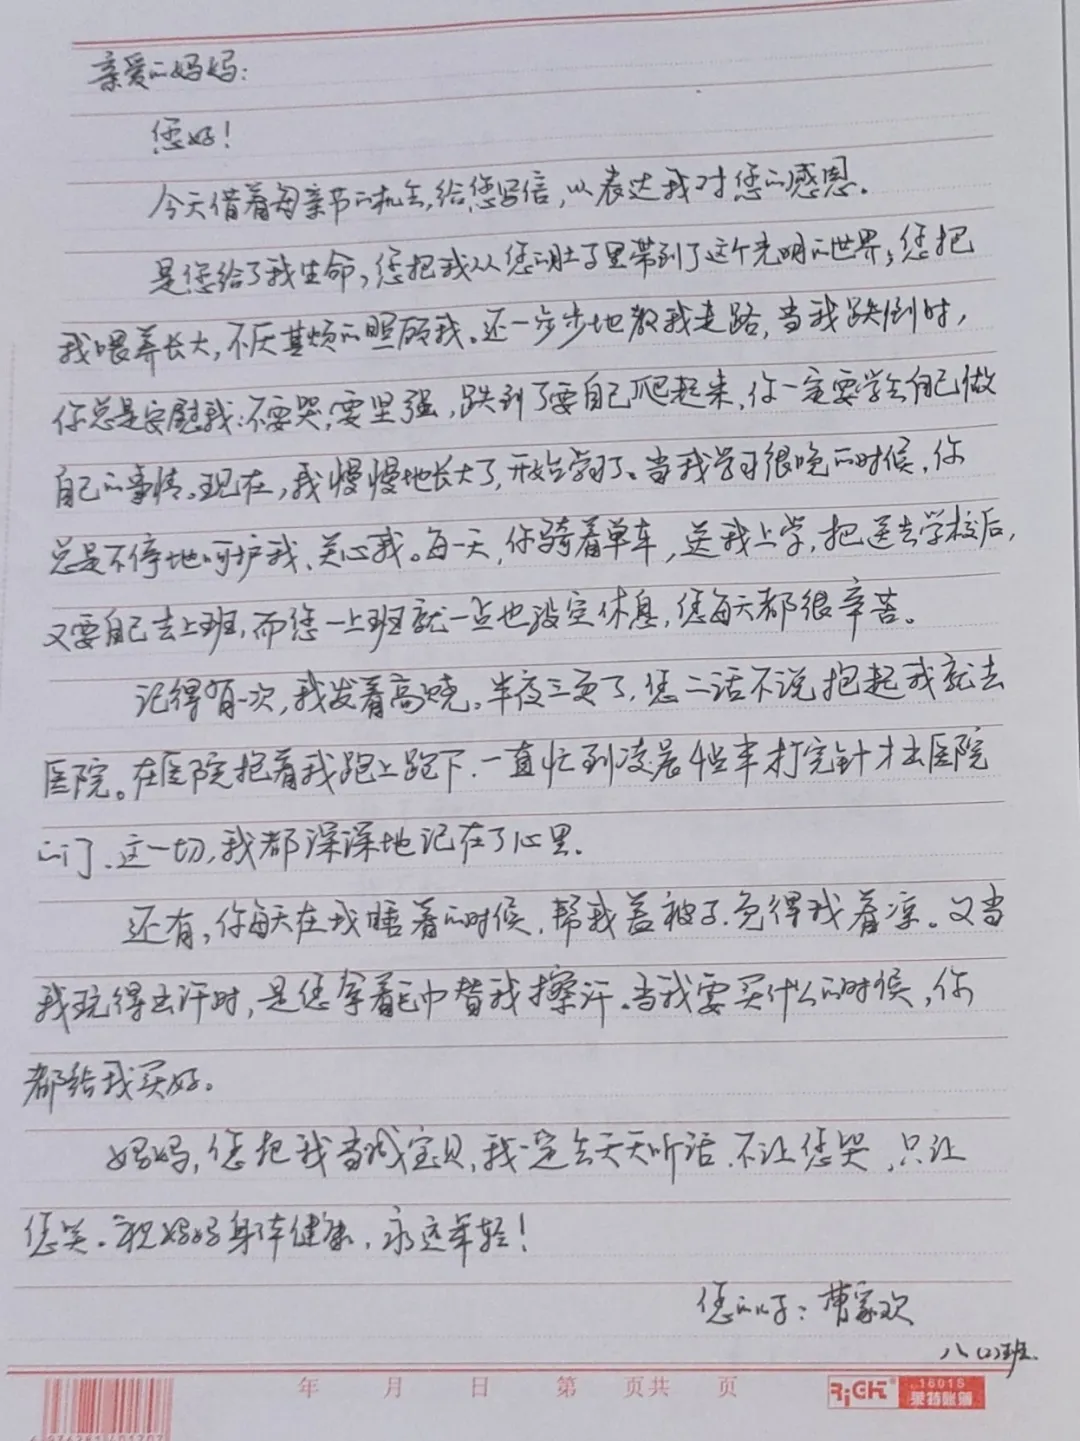 亲爱的妈妈：
您好！
今天借着母亲节的机会，给您写信，以表达我对您的感恩。
是您给了我生命，您把我从您的肚子里带到了这个光明的世界；您把
我喂养长大，不厌其烦的照顾我。还一步步地教我走路，当我跌倒时，
你总是安慰我：不要哭，要坚强，跌到了要自己爬起来，你一定要学会自己做
自己的事情。现在，我慢慢地长大了，开始学习了。当我学习很晚的时候，你
总是不停地呵护我、关心我。每一天，你骑着单车，送我上学，把送去学校后，
又要自己去上班，而您一上班就一点也没空休息，您每天都很辛苦。
记得有一次，我发着高烧。半夜三更了，您二话不说抱起我就去
医院。在医院抱着我跑上跑下，一直忙到凌晨4点半打完针才出医院
的门、这一切，我都深深地记在了心里。
还有，你每天在我睡着的时候，帮我盖被子，免得我着凉。又当
我玩得出汗时，是您拿着毛巾替我擦汗。当我要买什么的时候，你
都给我买好。
妈妈，您把我当成宝贝，我一定会天天听话，不让您哭，只让
您笑。祝妈妈身体健康，永远年轻！
您的儿子：曹家欢
八（2）班
年 月 日 第 页共 页 RiGHT 1601S
莱特账簿